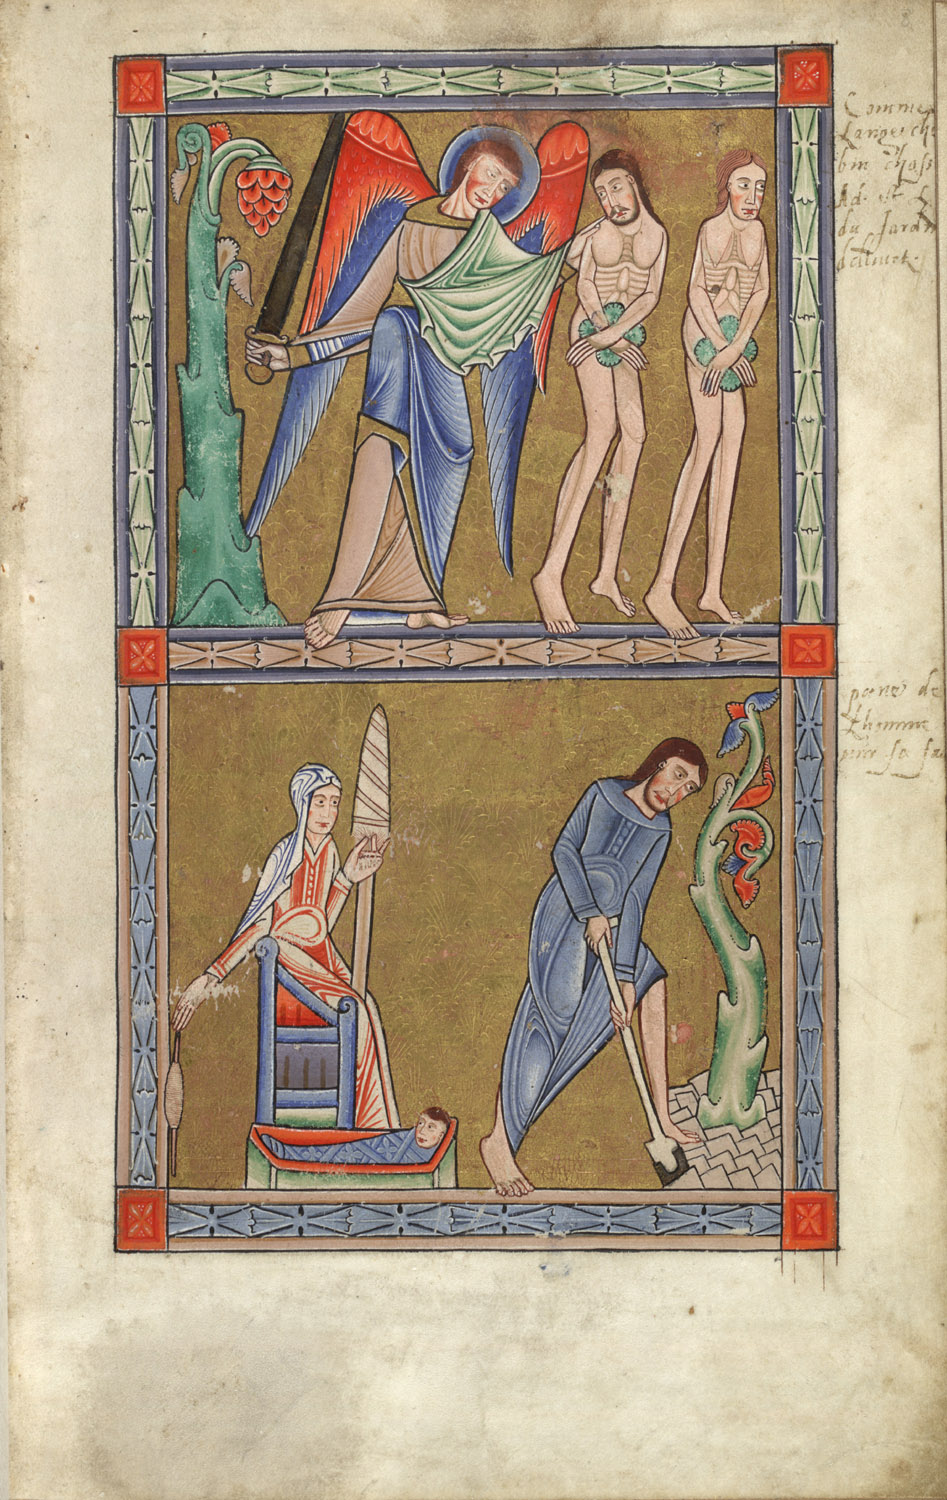 Comme
Lange che
bin chass
Ad. et E
du Jardi
delitiet.
pene de
Lhomme
pour so fa